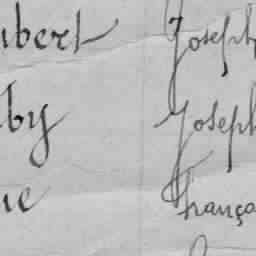 ubert Joseph
by Joseph
ue França